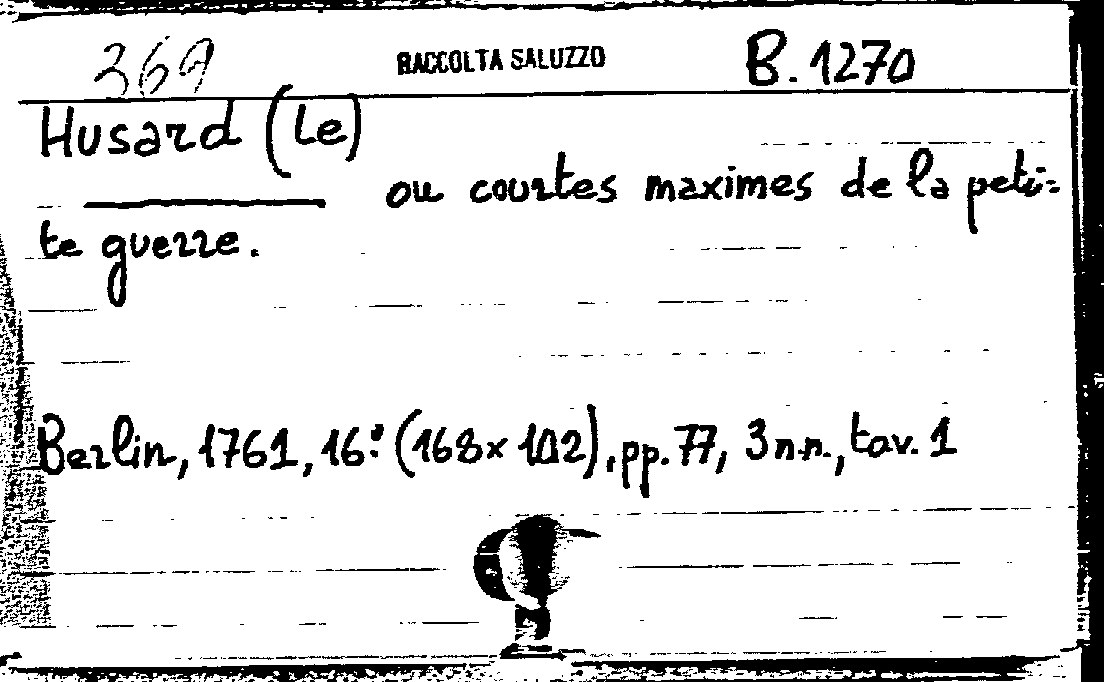 369 RACCOLTA SALUZZO B. 1270
Husard (Le)
ou courtes maximes de la peti=
te guerre.
Berlin, 1761, 16º (168x102), pp. 77, 3 n.n., tav. 1